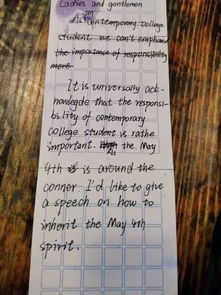 Ladies and gentlemen
As contemporary college
student we can't emphasize
the importance of responsibility
more.
It is universally ack-
nowlegde that the responsi-
bility of contemporary
college student is rathe
important. As the May
4th is around the
conner I'd like to give
a speech on how to
inherit the May 4th
spirit.